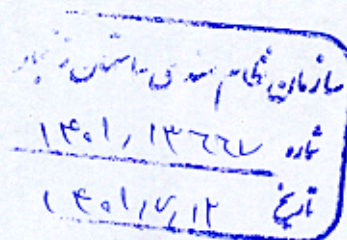 سازمان نظام مهندسی ساختمان
شماره ۱۴۰۱/۱۳۶۶۷
تاریخ ۱۴۰۱/۷/۱۲